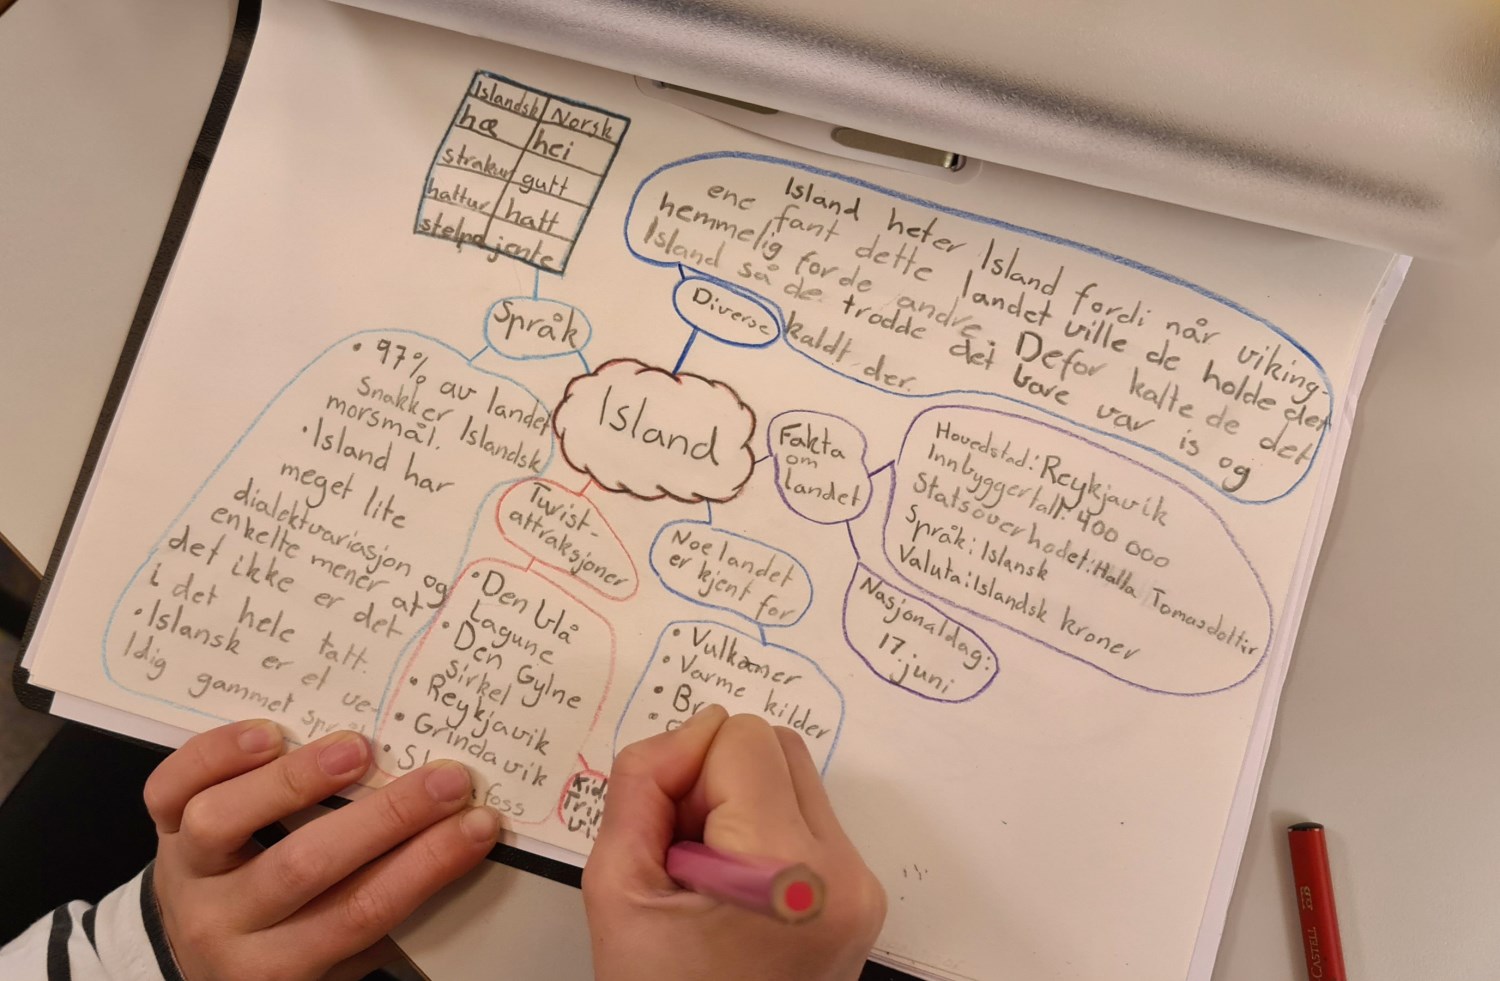 Islandsk Norsk
hæ hei
strakur gutt
hattur hatt
stelpa jente
Språk
Island heter Island fordi når viking-
ene fant dette landet ville de holde det
hemmelig for de andre. Defor kalte de det
Island så de trodde det bare var is og
kaldt der.
Diverse
Island
• 97% av landet
snakker Islandsk
morsmål.
• Island har
meget lite
dialektvariasjon og
enkelte mener at
det ikke er det
i det hele tatt.
• Islansk er et ve-
ldig gammet
Fakta
om
landet
Hovedstad: Reykjavik
Innbyggertall: 400 000
Statsoverhodet: Halla Tomasdottir
Språk: Islansk
Valuta: Islandsk kroner
Nasjonaldag:
17. juni
Turist-
attraksjoner
• Den blå
Lagune
• Den Gylne
sirkel
• Reykjavik
• Grindavik
foss
Noe landet
er kjent for
• Vulkaner
• Varme kilder
CASTELL